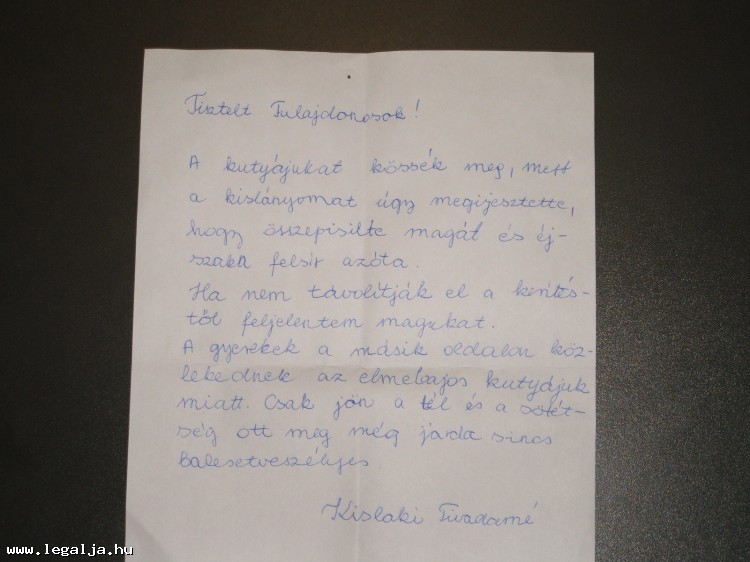 Tisztelt Tulajdonosok!
A kutyájukat kössék meg, mert
a kislányomat úgy megijesztette,
hogy összepisilte magát és éj-
szaka felsír azóta.
Ha nem távolítják el a kerítés-
től feljelentem magukat.
A gyerekek a másik oldalon köz-
lekednek az elmebajos kutyájuk
miatt. Csak jön a tél és a sötét-
ség ott meg még járda sincs
Balesetveszélyes.
Kislaki Tivadarné
www.legalja.hu